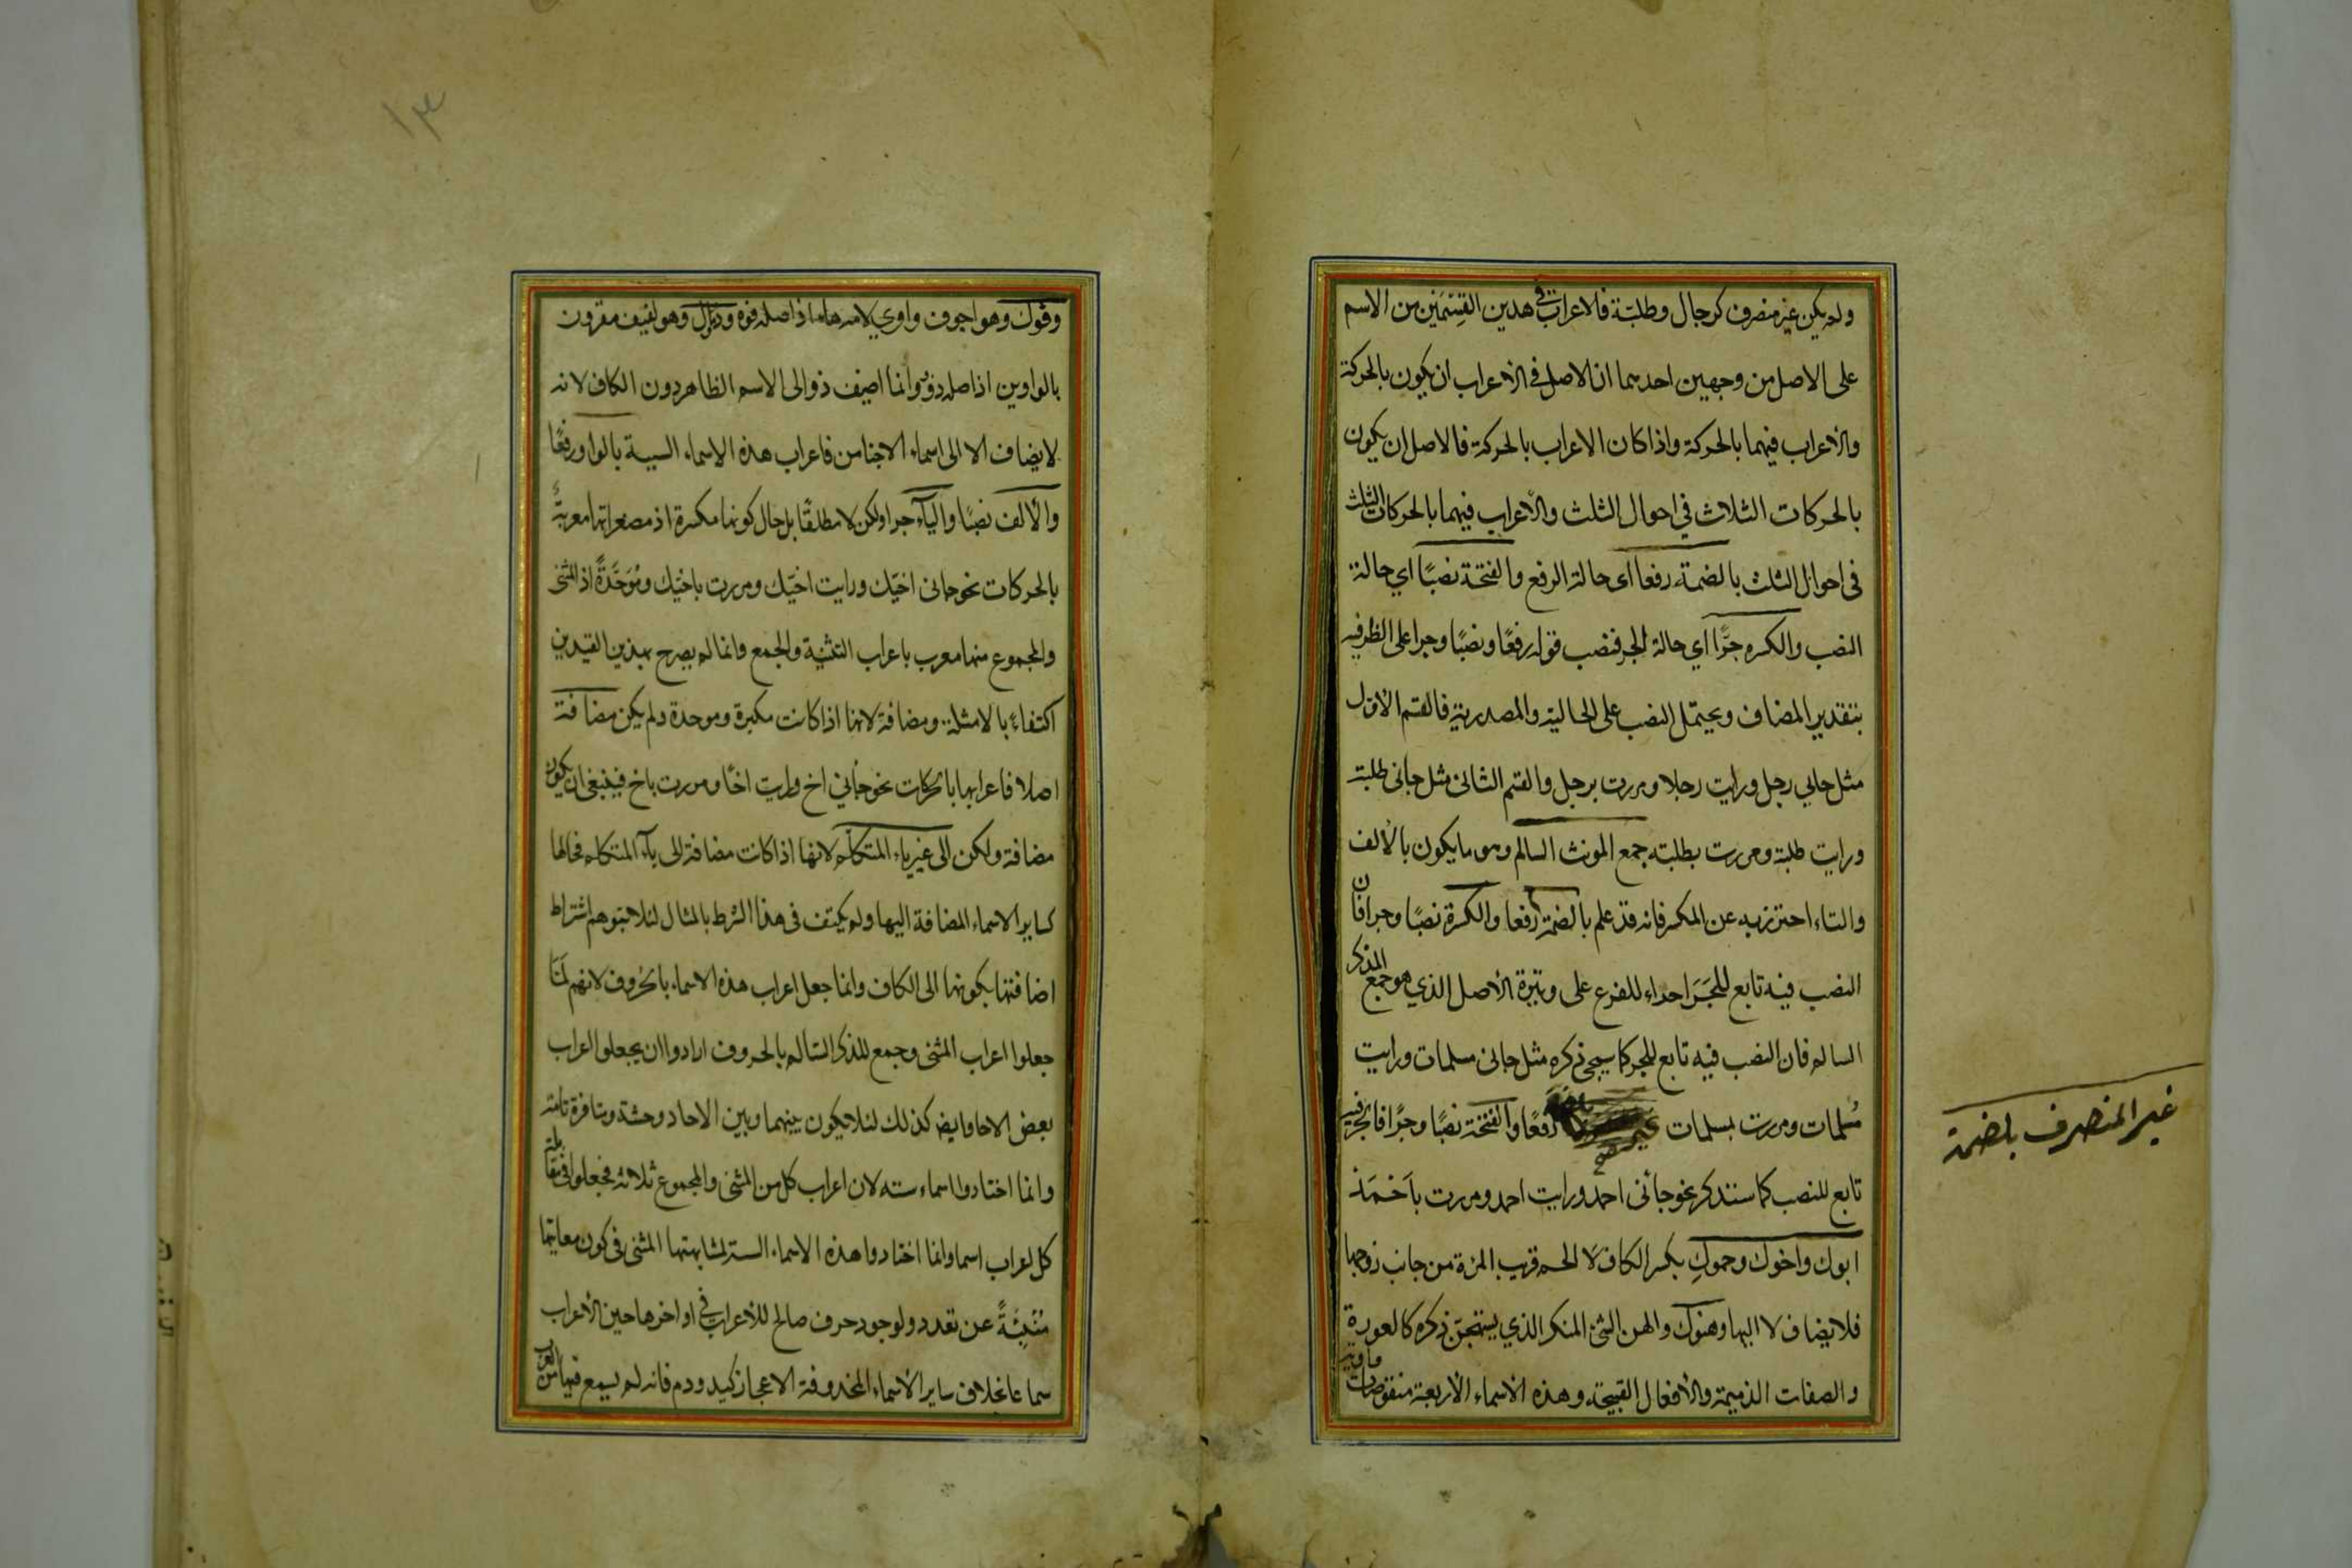 ولم يكن غير منصرف كرجال وطلبة فالاعراب في هذين القسمين من الاسم
على الاصل من وجهين احدهما ان الاصل في الاعراب ان يكون بالحركة
والاعراب فيهما بالحركة واذا كان الاعراب بالحركة فالاصل ان يكون
بالحركات الثلاث في احوال الثلث والاعراب فيهما بالحركات الثلث
فى احوال الثلث بالضمة رفعا اى حالة الرفع والفتحة نصبًا اي حالة
النصب والكسره جرًّا اي حالة الجر فنصب قوله رفعًا ونصبًا وجرا على الظرفيه
بتقدير المضاف ويحتمل النصب على الحالية والمصدرية فالقسم الاول
مثل جاني رجل ورايت رجلا ومررت برجل والقسم الثانى مثل جانى طلبة
ورايت طلبة ومررت بطلبته جمع المونث السالم وهو ما يكون بالالف
والتاء احترز به عن المكسر فانه قد علم بالضمة رفعا والكسرة نصبًا وجرا فان
النصب فيه تابع للجر اجراء للفرع على وتيرة الاصل الذي هو جمع المذكر
السالم فان النصب فيه تابع للجر كما سيجى ذكره مثل جانى مسلمات ورايت
مُسلمات ومررت بمسلمات رفعًا والفتحة نصبًا وجرًا فالجر فيه
غير المنصرف بلضمة
تابع للنصب كما سنذكر نحو جانى احمد ورايت احمد ومررت باَحْمَدَ
ابوك واخوك وحموكِ بكسر الكاف لا الحم قريب المرءة من جانب زوجها
فلا يضاف لا اليها وهنوك والهن الشئ المنكر الذي يستهجن ذكره كالعورة
والصفات الذميمة والافعال القبيحة وهذه الاسماء الاربعة منقوصات واوية
١٣
وفوك وهو اجوف واوي لامه هاء اذ اصله فوه وذو مال وهو لفيف مقرون
بالواوين اذ اصله ذوو وانما اضيف ذو الى الاسم الظاهر دون الكاف لانه
لا يضاف الا الى اسماء الاجناس فاعراب هذه الاسماء الستة بالواو رفعًا
والالف نصبًا والياء جرا ولكن لا مطلقًا بل حال كونها مكبرة اذ مصغراتها معربةٌ
بالحركات نحو جانى اخيّك ورايت اخيّك ومررت باخيّك ومُوَحَّدَةً اذ المثنى
والمجموع منها معرب باعراب التثنية والجمع وانما لم يصرح بهذين القيدين
اكتفاءً بالامثلة ومضافة لانها اذا كانت مكبرة وموحدة ولم يكن مضافة
اصلا فاعرابها بالحركات نحو جاني اخ ورايت اخًا ومررت باخ فينبغى ان يكون
مضافة ولكن الى غير ياء المتكلم لانها اذا كانت مضافة الى ياء المتكلم فحالها
كساير الاسماء المضافة اليها ولم يكتف فى هذا الشرط بالمثال لئلا يتوهم اشتراط
اضافتها بكونها الى الكاف وانما جعل اعراب هذه الاسماء بالحروف لانهم لمّا
جعلوا اعراب المثنى وجمع المذكر السالم بالحروف ارادوا ان يجعلوا اعراب
بعض الاحاد ايضا كذلك لئلا يكون بينهما وبين الاحاد وحشة ومنافرة تامة
وانما اختاروا اسماء سته لان اعراب كل من المثنى والمجموع ثلاثه فجعلوا فى مقابلة
كل اعراب اسما وانما اختاروا هذه الاسماء الستة لمشابهتها المثنى فى كون معانيها
مُنْبِئَةً عن تعدد ولوجود حرف صالح للاعراب في اواخرها حين الاعراب
سماعا بخلاف ساير الاسماء المحذوفة الاعجاز كيد ودم فانه لم يسمع فيها من العرب